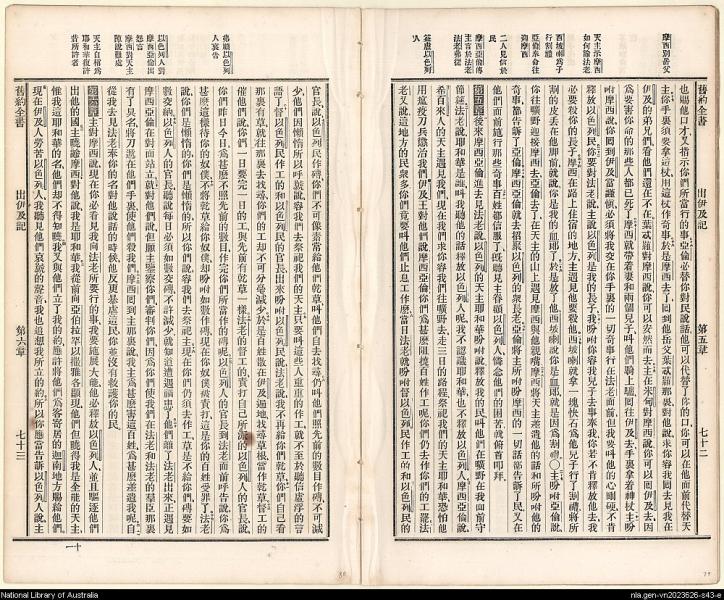 舊約全書
出伊及記
第五章
七十二
摩西別岳父
天主示摩西
如何除法老
西坡喇爲子
行割禮
亞倫奉命往
迎摩西
二人見信於
民
摩西亞倫傳
主言於法老
法老弗從
益虐以色列
人
也賜他口才又指示你們所當行的事亞倫必替你對民說話他可以代替了你的口你可以在他面前代替天
主你手裏須要拿這杖用這杖作奇事於是摩西去了回到他岳父葉忒羅那裏對他說求你容我回去見我在
伊及的弟兄們看他們還在不在葉忒羅對摩西說你可以安然而去主在米甸對摩西說你可以回伊及去因
爲要害你命的那些人都已死了摩西就帶着妻和兩個兒子叫他們騎上驢回往伊及去手裏拿着神杖主吩
咐摩西說你回到伊及當謹愼必須將我交在你手裏的一切奇事行在法老面前但我要叫他的心剛硬不肯
釋放以色列民你要對法老說主說以色列是我的長子我吩咐你容我兒子去事奉我你若不肯釋放他去我
必要殺你的長子摩西在路上住宿的地方主遇見他要殺他西坡喇就拿一塊快石爲他兒子行了割禮將所
割的皮丟在他脚前就說你是我的血郎了於是放了他西坡喇說你是血郎就是因爲割禮○主吩咐亞倫說
你往曠野迎接摩西去亞倫去了在天主的山上遇見摩西與他親嘴摩西將天主差遣他的話和所吩咐他的
奇事都告訴了亞倫摩西亞倫就去招聚以色列的衆長老亞倫將主所吩咐摩西的一切話都告訴了民又在
他們面前施行那些奇事百姓都信服了旣聽見主眷顧以色列人憐念他們的困苦就俯首叩拜
第五章後來摩西亞倫進去見法老說以色列的天主耶和華吩咐說釋放我的民叫他們在曠野在我面前守
節法老說耶和華是誰叫我聽他的話釋放以色列人呢我不認識耶和華也不釋放以色列人摩西亞倫說
希百來人的天主我們現在我們求你容我們往曠野去走三日的路程祭祀我們的天主耶和華恐怕他
用瘟疫刀兵懲治我們伊及王對他們說摩西亞倫你們爲甚麽阻礙百姓作工呢你們仍去作你們的工罷法
老又說這地方的民衆多你們竟要叫他們止息工作麽當日法老就吩咐督以色列民作工的和以色列民的
舊約全書
出伊及記
第六章
七十三
弗聽以色列
人哀告
以色列人對
摩西亞倫出
怨言
摩西對天主
陳說艱難
天主自稱爲
耶和華復許
昔所許者
官長說以色列民作磚你們不可像素常給他們乾草叫他們自去找尋仍叫他們照先前的數目作磚不可減
少他們因懶惰所以呼號說容我們去祭祀我們的天主只要叫這些人重重的作工就不至於聽信虛浮的言
語了督以色列民作工的和以色列民的官長出來吩咐以色列民說法老說我不再給你們乾草你們自己看
那裏有草就往那裏去找尋你們的工却不可分毫減少於是百姓散在伊及遍地找尋草根當作乾草督工的
催他們說你們一日要完一日的工與先前有乾草一樣法老的督工的責打自己所派的以色列人的官長說
你們昨日今日爲甚麽不照先前的數目作完你們所當作的磚呢以色列人的官長到法老面前呼告說你爲
甚麽這樣待你的奴僕不將乾草給你奴僕却吩咐如數作磚現在你奴僕被責打這是你的百姓受罪了法老
說你們是懶惰的你們是懶惰的所以你們說容我們去祭祀主現在你們仍須去作工草是不給你們磚要如
數交納以色列人的官長聽說每日必須如數交磚不許減少就知道遭遇禍患了他們離了法老出來正遇見
摩西亞倫在對面站立就對他們說但願主鑒察你們審判你們因爲你們使我們在法老和法老的羣臣那裏
有了臭名將刀遞在他們手裏使他們殺我們摩西回到主那裏說我主爲甚麽害這百姓爲甚麽差遣我呢自
從我去見法老奉你的名對他說話的時候他反更暴虐這民你並沒有救護你的民
第六章主對摩西說現在你必看見我向法老所要行的事我要施展大能他必釋放以色列人並且驅逐他們
出他的國主曉諭摩西對他說我是耶和華我從前向亞伯拉罕以撒雅各顯現他們但曉得我是全能的天主
惟我這耶和華的名他們却不得知曉我又與他們立了我的約應許將他們爲客寄居的迦南地方賜給他們
現在伊及人勞苦以色列人我聽見他們哀號的聲音我也追想我所立的約所以你應當告訴以色列人說主
National Library of Australia
nla.gen-vn2023626-s43-e